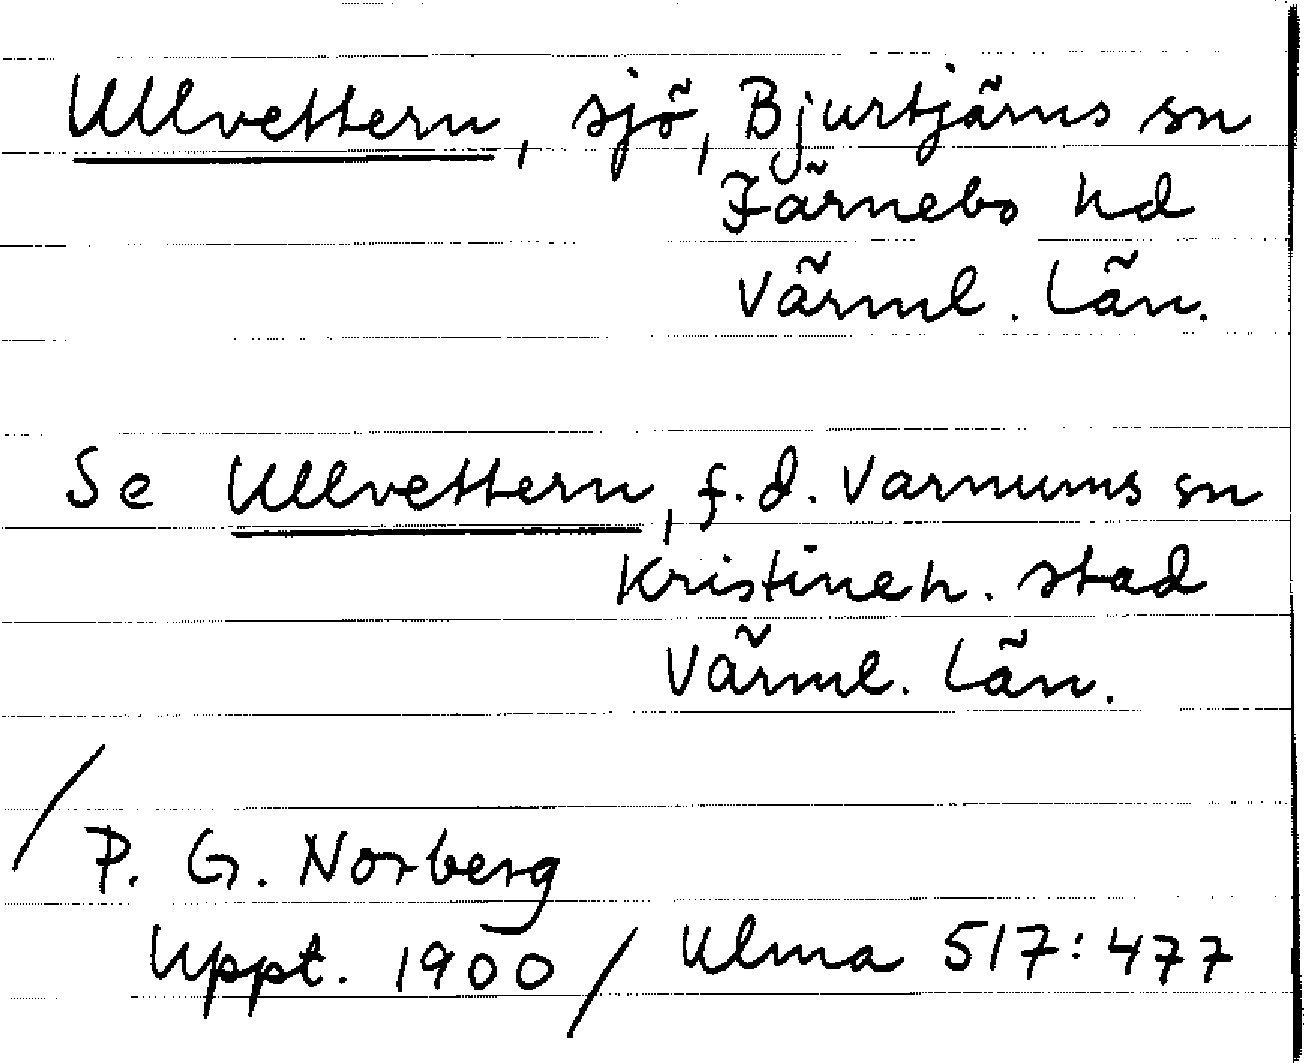 Ullvettern, sjö, Bjurtjärns sn
Färnebo hd
Värml. län.
Se Ullvettern, f.d. Varnums sn
Kristineh. stad
Värml. län.
/ P. G. Norberg
Uppt. 1900 / Ulma 517:477